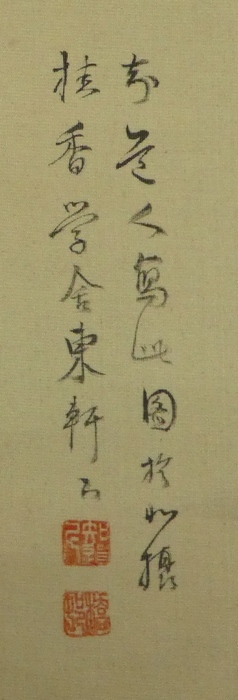 道人寫此圖於北攝
桂香学舎東軒下